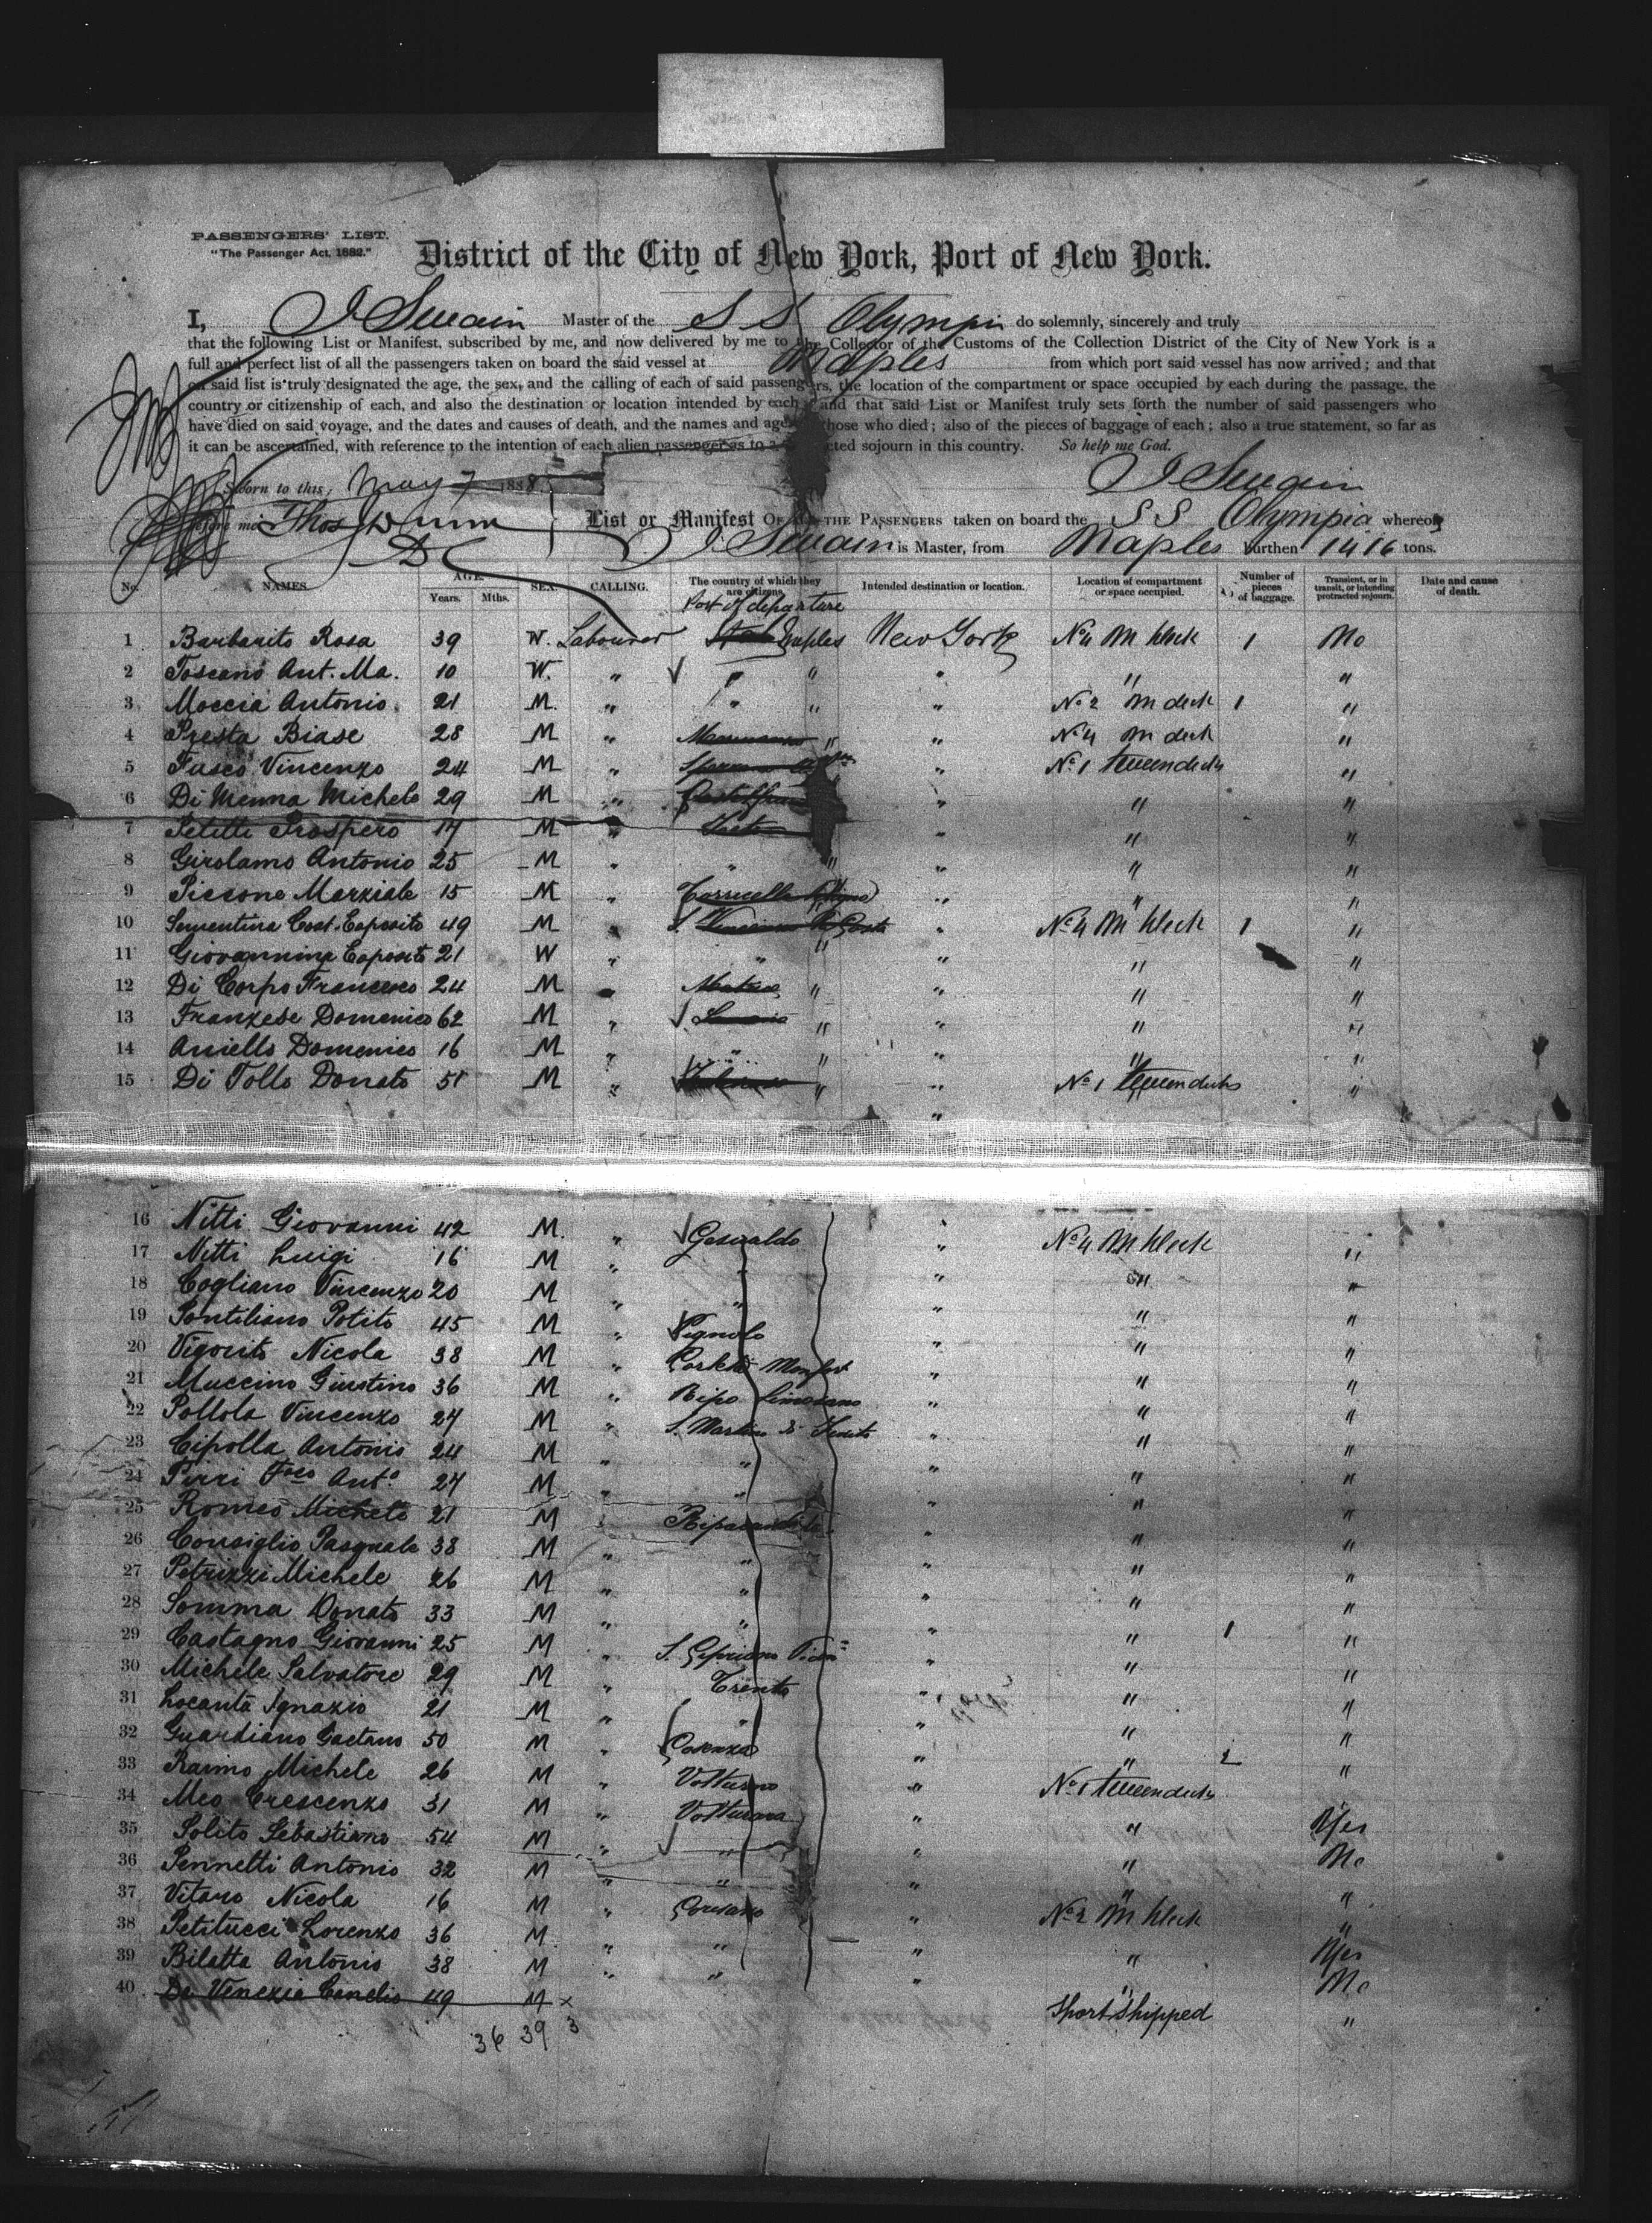 PASSENGERS' LIST.
"The Passenger Act, 1882."
District of the City of New York, Port of New York.
I, J Swain Master of the S S Olympia do solemnly, sincerely and truly
that the following List or Manifest, subscribed by me, and now delivered by me to the Collector of the Customs of the Collection District of the City of New York is a
full and perfect list of all the passengers taken on board the said vessel at Naples from which port said vessel has now arrived; and that
on said list is truly designated the age, the sex, and the calling of each of said passengers, the location of the compartment or space occupied by each during the passage, the
country or citizenship of each, and also the destination or location intended by each and that said List or Manifest truly sets forth the number of said passengers who
have died on said voyage, and the dates and causes of death, and the names and ages those who died; also of the pieces of baggage of each; also a true statement, so far as
it can be ascertained, with reference to the intention of each alien passenger as to a cted sojourn in this country. So help me God.
J Swain
Sworn to this, May 7 1888
before me Thos Dunn
D C
List or Manifest OF THE PASSENGERS taken on board the S S Olympia whereof
J Swain is Master, from Naples burthen 1416 tons.
No. NAMES. AGE. Years. Mths. SEX. CALLING. The country of which they are citizens. Intended destination or location. Location of compartment or space occupied. Number of pieces of baggage. Transient, or in transit, or intending protracted sojourn. Date and cause of death.
Port of departure
1 Barbarito Rosa 39 W. Labourer Naples New York No 4 M deck 1 No
2 Toscano Ant. Ma. 10 W. " " " " " "
3 Moccia Antonio. 21 M. " " " " No 2 M deck 1 "
4 Presta Biase 28 M " " " No 4 M deck "
5 Fusco Vincenzo 24 M " " No 1 tweendecks "
6 Di Menna Michele 29 M " " " "
7 Petitti Prospero 17 M " " " "
8 Girolamo Antonio 25 M " " " " " "
9 Piccone Marziale 15 M " Torricella Peligna " " "
10 Sementina Cost. Esposito 49 M " S. " No 4 M deck 1 "
11 Giovannina Esposito 21 W " " " " " "
12 Di Corpo Francesco 24 M " " " " "
13 Franzese Domenico 62 M " " " " "
14 Aniello Domenico 16 M " " " " " "
15 Di Tollo Donato 51 M " " " No 1 tweendecks "
16 Nitti Giovanni 42 M. " Gesualdo " No 4 M deck "
17 Nitti Luigi 16 M " " " " "
18 Cogliano Vincenzo 20 M " " " " "
19 Pontiliano Potito 45 M " Pignola " " "
20 Vigorito Nicola 38 M " Corleto Monfort " " "
21 Muccino Giustino 36 M " Ripa Limosano " " "
22 Pollola Vincenzo 27 M " S. Martino " " "
23 Cipolla Antonio 24 M " " " " "
24 Pirri Fco Anto. 27 M " " " " "
25 Romeo Michele 21 M " Ripacandida " " "
26 Consiglio Pasquale 38 M " " " " "
27 Petrizzi Michele 26 M " " " " "
28 Somma Donato 33 M " " " " "
29 Castagno Giovanni 25 M " S. Cipriano " " 1 "
30 Michele Salvatore 29 M " Trento " " "
31 Locanta Ignazio 21 M " " " " "
32 Guardiano Gaetano 50 M " Cosenza " " "
33 Raimo Michele 26 M " Volturno " " 2 "
34 Meo Crescenzo 31 M " Volturara " No 1 tweendecks
35 Solito Sebastiano 54 M " " " " Yes
36 Pennetti Antonio 32 M " " " " No
37 Vitaro Nicola 16 M " " " "
38 Petitucci Lorenzo 36 M. " " " No 2 M deck "
39 Bilotta Antonio 38 M " " " " Yes
40 De Venezia Canelio 49 M x " No
Short shipped "
36 39 3